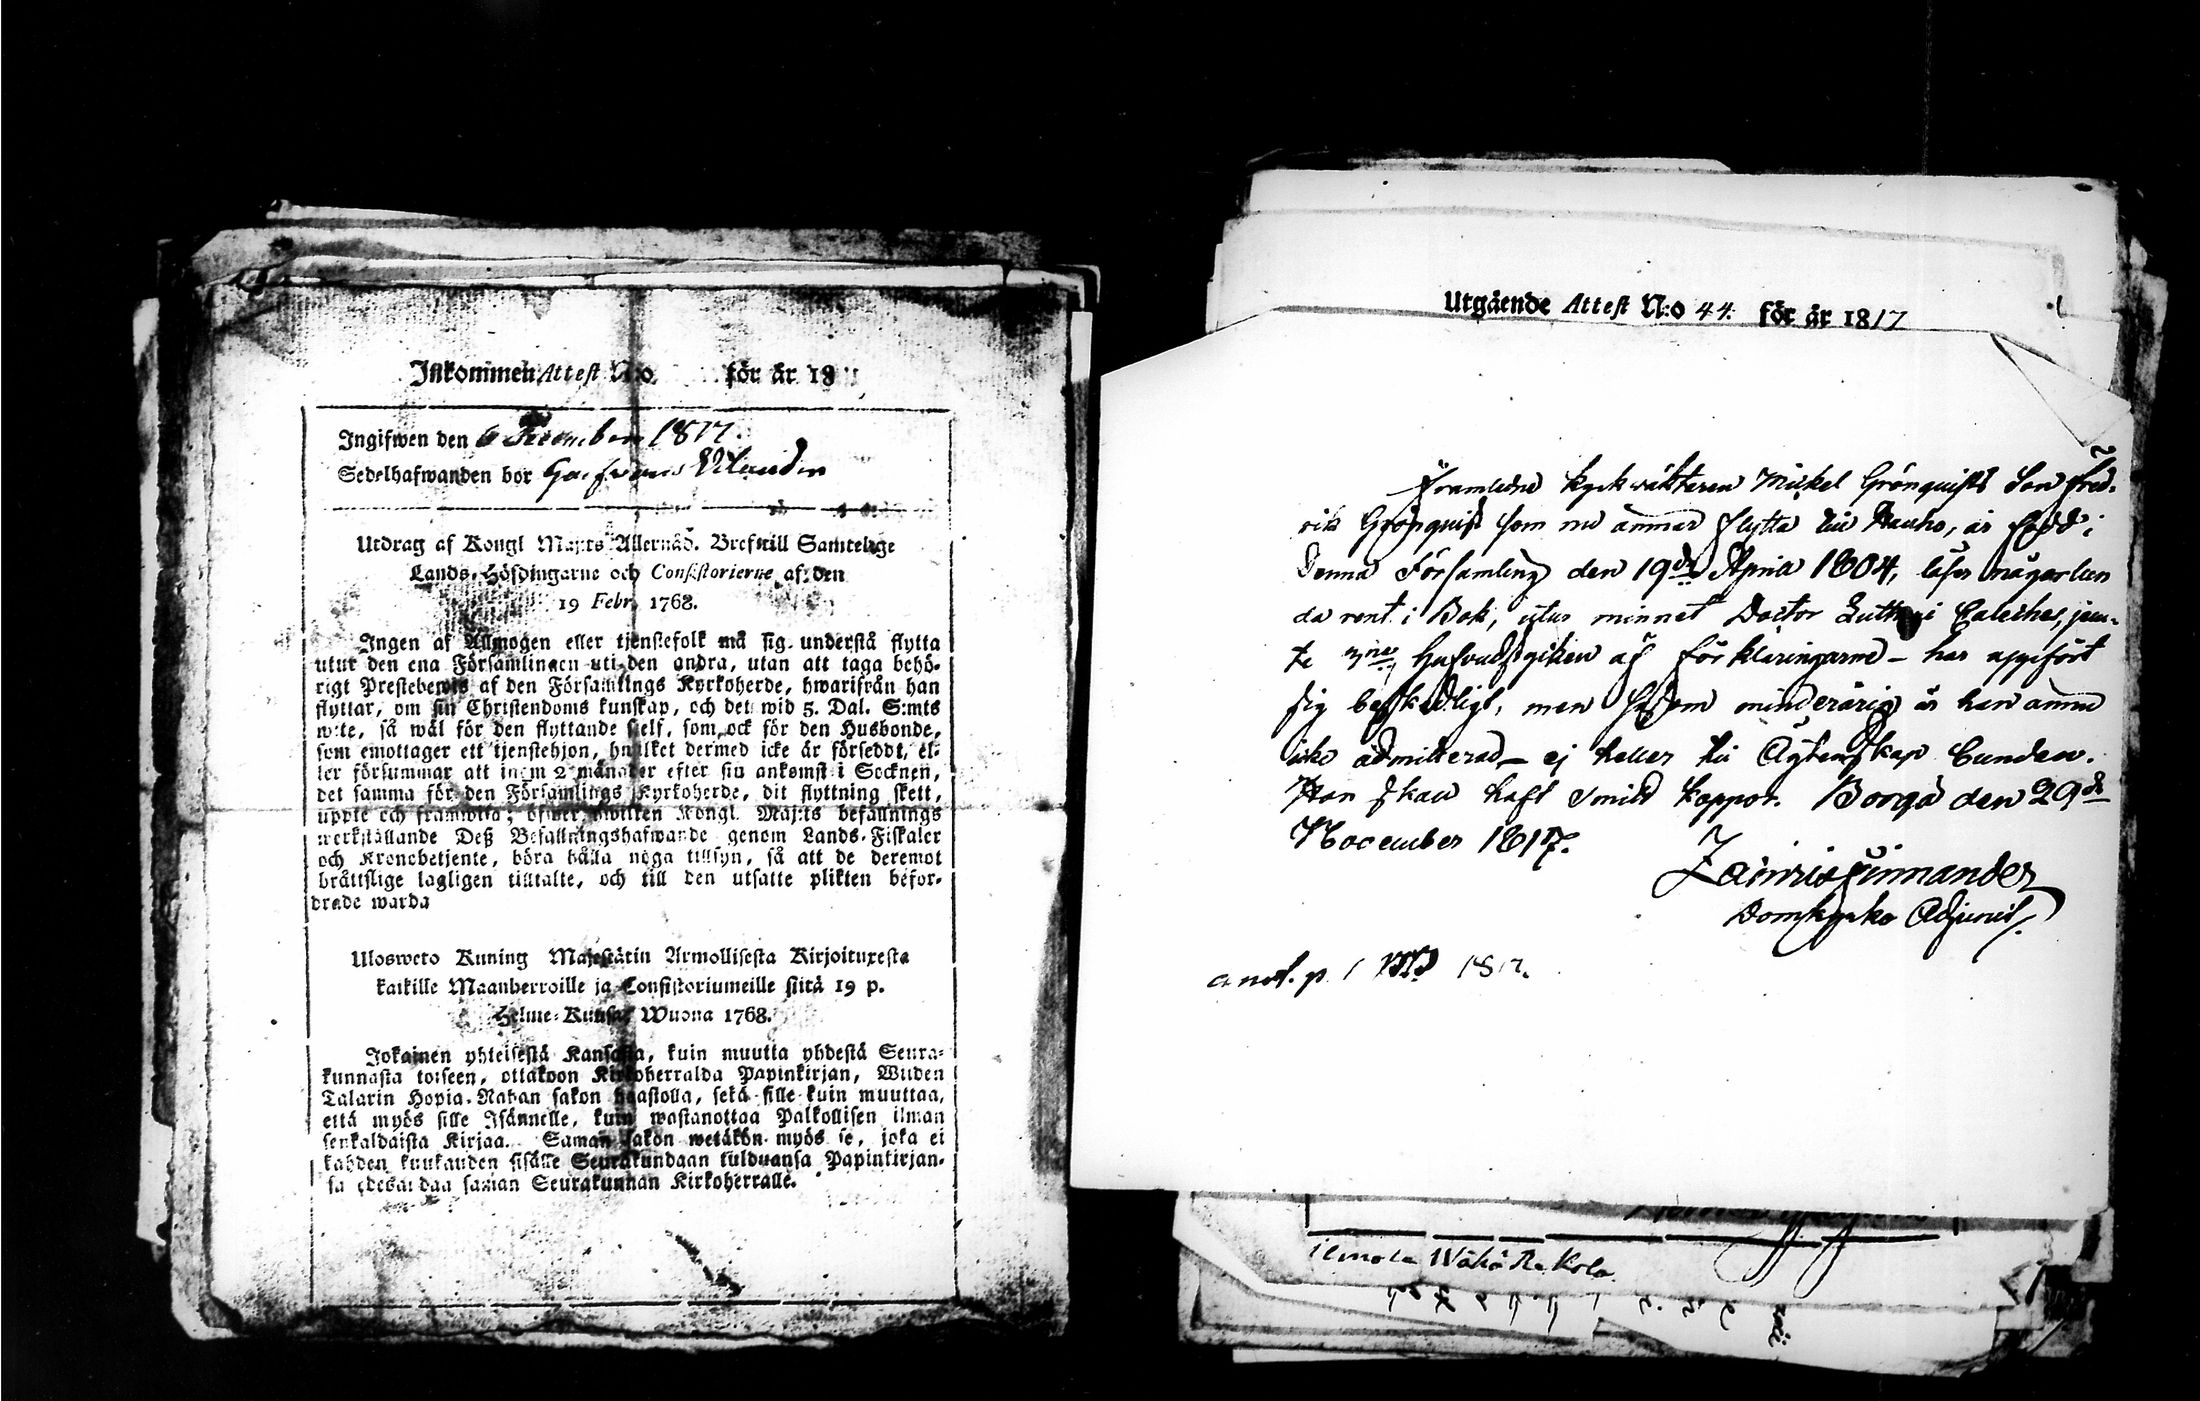 Inkommen Attest N:o för år 18
Ingifwen den 6 December 1817.
Sedelhafwanden bor
Utdrag af Kongl Maj:ts Allernåd. Bref till Samtelige
Lands-Höfdingarne och Consistorierne af den
19 Febr. 1768.
Ingen af Allmogen eller tjenstefolk må sig understå flytta
utur den ena Församlingen uti den andra, utan att taga behö-
rigt Prestebewis af den Församlings Kyrkoherde, hwarifrån han
flyttar, om sin Christendoms kunskap, och det wid 5. Dal. S:mts
wite, så wäl för den flyttande sjelf, som ock för den Husbonde,
som emottager ett tjenstehjon, hwilket dermed icke är förseddt, el-
ler försummar att inom 2 månader efter sin ankomst i Socknen,
det samma för den Församlings Kyrkoherde, dit flyttning skett,
uppte och framwisa; öfwer hwilken Kongl. Maj:ts befallnings
werkställande Deß Befallningshafwande genom Lands-Fiskaler
och Kronobetjente, böra hålla noga tillsyn, så att de deremot
bråttslige lagligen tilltalte, och till den utsatte plikten befor-
drade warda
Ulosweto Kuning Majestätin Armollisesta Kirjoituxesta
kaikille Maanherroille ja Consistoriumeille siitä 19 p.
Helme-Kuusa Wuona 1768.
Jokainen yhteisestä Kansasta, kuin muutta yhdestä Seura-
kunnasta toiseen, ottakoon Kirkoherralda Papinkirjan, Wiiden
Talarin Hopia-Rahan sakon haastolla, sekä sille kuin muuttaa,
että myös sille Isännelle, kuin wastanottaa Palkollisen ilman
senkaldaista Kirjaa. Saman sakon wetäkön myös se, joka ei
kahden kuukauden sisälle Seurakundaan tulduansa Papinkirjan-
sa edesandaa saman Seurakunnan Kirkoherralle.
Utgående Attest N:o 44. för år 1817
Framledne kyrkväktaren Mickel Grönquists Son Fred-
rik Grönquist som nu ämnar flytta till Hauho, är född i
denna Församling den 19de April 1804, läser någorlun
da rent i Bok, utur minnet Doctor Lutheri Cateches, jem-
te Hufvudstycken af förklaringarne - har uppfört
sig beskedligt, men såsom minderårig är han ännu
icke admitterad - ej heller till Äktenskap bunden.
Han skall haft smitt koppor. Borgå den 29de
November 1817.
Finnander
Domkyrko Adjunct.
annot. p. 1817.
ilmola Wähä Rekola